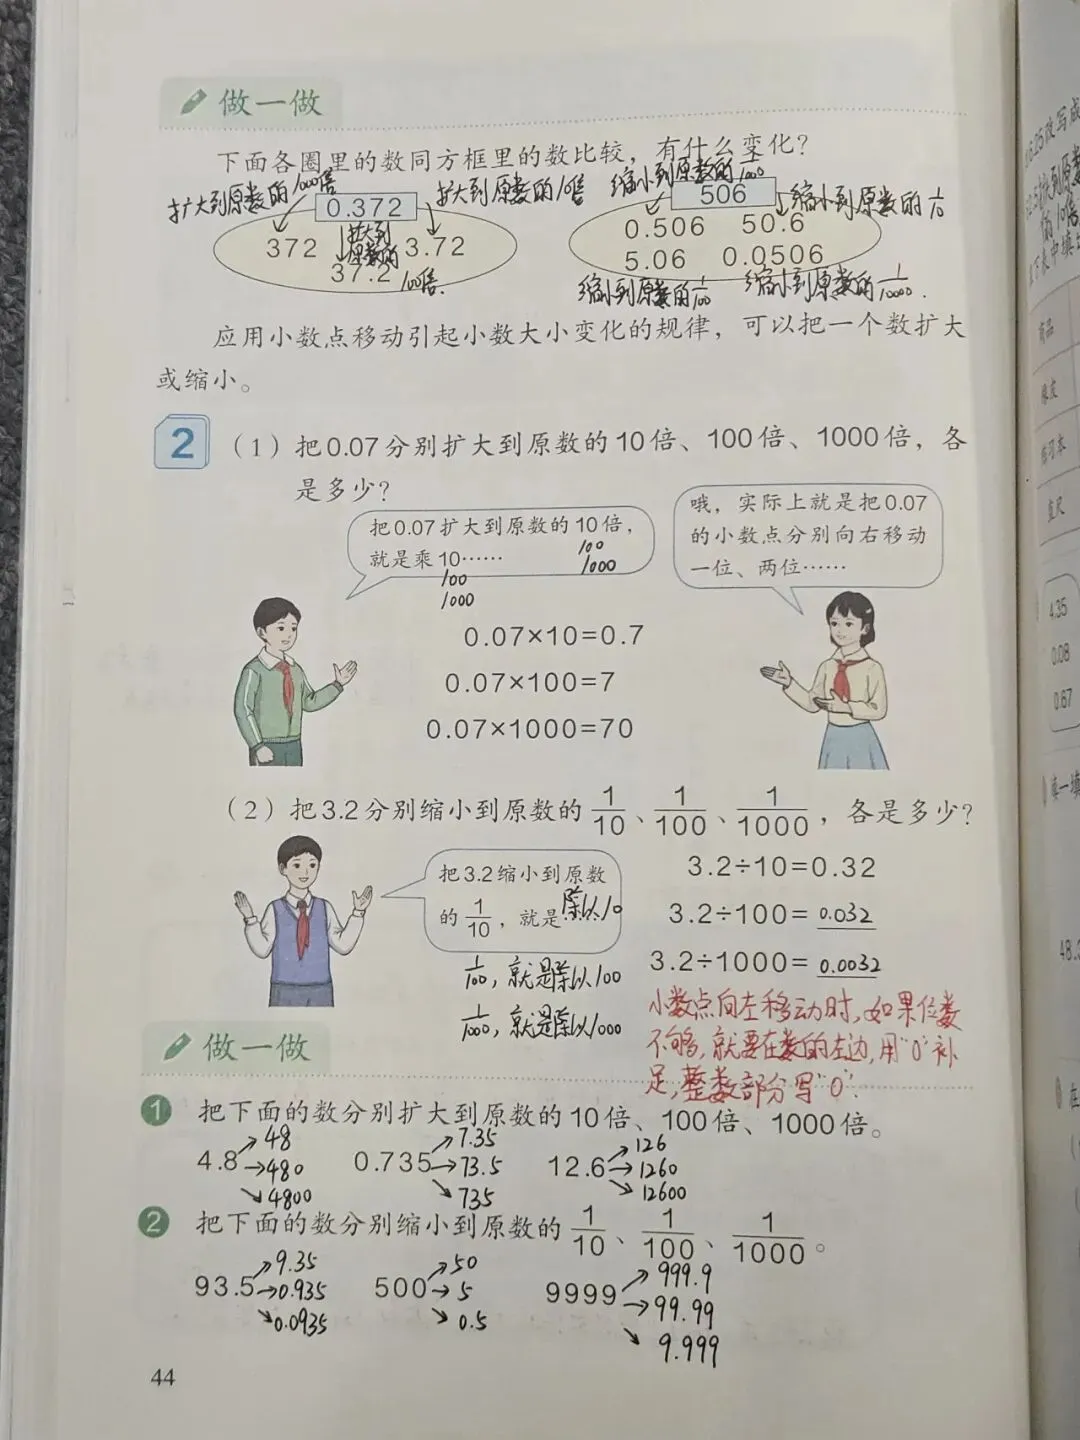 做一做
下面各圈里的数同方框里的数比较，有什么变化？
扩大到原数的1000倍
0.372
扩大到原数的10倍
372
扩大到原数的100倍
3.72
37.2
缩小到原数的1/1000
506
缩小到原数的1/10
0.506 50.6
5.06 0.0506
缩小到原数的1/100
缩小到原数的1/10000.
应用小数点移动引起小数大小变化的规律，可以把一个数扩大
或缩小。
2 （1）把0.07分别扩大到原数的10倍、100倍、1000倍，各
是多少？
把0.07扩大到原数的10倍，
就是乘10……
100
1000
100
1000
哦，实际上就是把0.07
的小数点分别向右移动
一位、两位……
0.07×10=0.7
0.07×100=7
0.07×1000=70
（2）把3.2分别缩小到原数的1/10、1/100、1/1000，各是多少？
把3.2缩小到原数
的1/10，就是除以10
1/100，就是除以100
1/1000，就是除以1000
3.2÷10=0.32
3.2÷100=0.032
3.2÷1000=0.0032
小数点向左移动时，如果位数
不够，就要在数的左边，用"0"补
足，整数部分写"0".
做一做
1 把下面的数分别扩大到原数的10倍、100倍、1000倍。
4.8 →48 →480 →4800
0.735 →7.35 →73.5 →735
12.6 →126 →1260 →12600
2 把下面的数分别缩小到原数的1/10、1/100、1/1000。
93.5 →9.35 →0.935 →0.0935
500 →50 →5 →0.5
9999 →999.9 →99.99 →9.999
44
改写成
商品
橡皮
练习本
直尺
4.35
0.08
0.67
填一填
48.